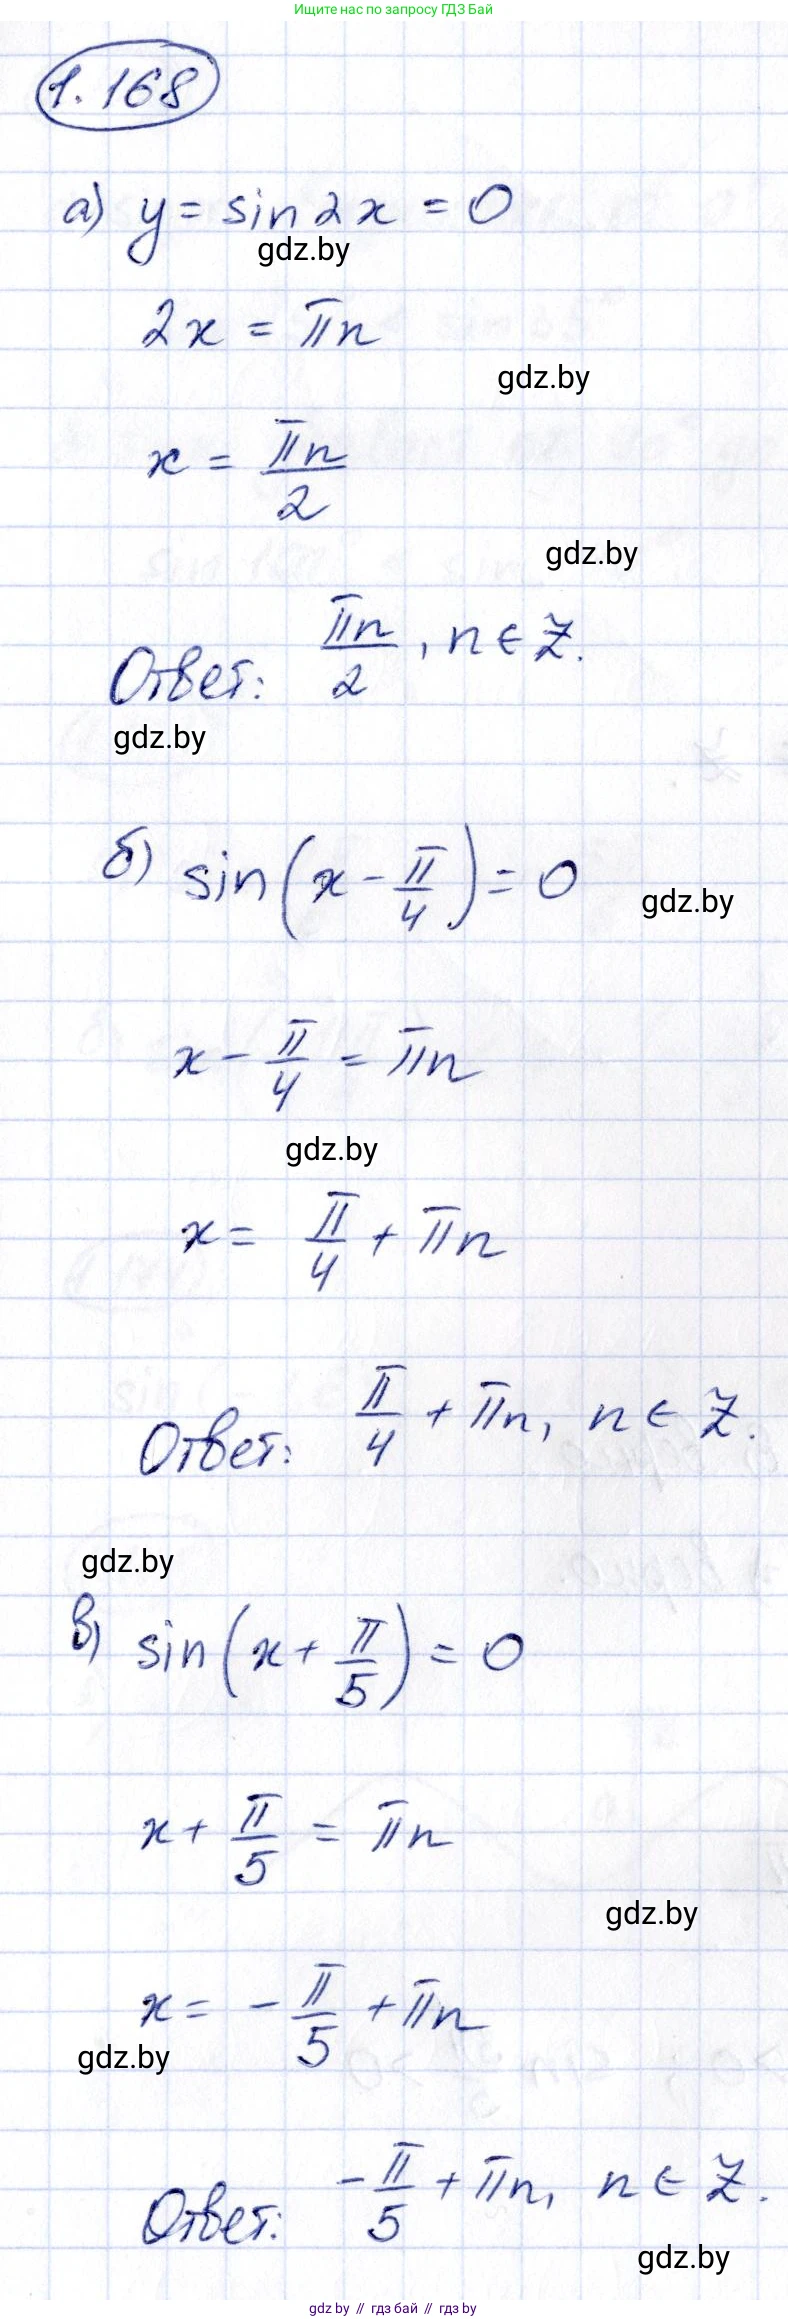 Ищите нас по запросу ГДЗ Бай
1.168
а) y = sin 2x = 0
gdz.by
2x = πn
gdz.by
x = πn/2
gdz.by
Ответ: πn/2, n ∈ Z.
gdz.by
б) sin(x - π/4) = 0
gdz.by
x - π/4 = πn
gdz.by
x = π/4 + πn
Ответ: π/4 + πn, n ∈ Z.
gdz.by
в) sin(x + π/5) = 0
x + π/5 = πn
gdz.by
x = -π/5 + πn
gdz.by
Ответ: -π/5 + πn, n ∈ Z.
gdz.by
gdz by // гдз бай // гдз by